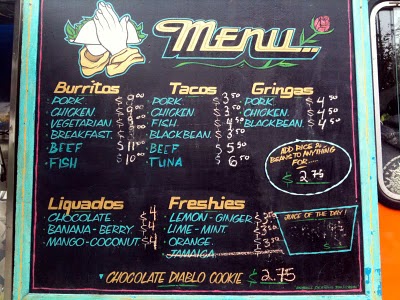 MENU..
Burritos
PORK $ 9.00
CHICKEN $
VEGETARIAN $
BREAKFAST $
BEEF $ 11.00
FISH $ 10.00
Tacos
PORK $ 3.50
CHICKEN $ 3.50
FISH $
BLACKBEAN $
BEEF $ 5.50
TUNA $ 6.50
Gringas
PORK $ 4.50
CHICKEN $ 4.50
BLACKBEAN $ 4.50
ADD RICE &
BEANS TO ANYTHING
FOR
$ 2.75
Liquados
CHOCOLATE $4
BANANA-BERRY $4
MANGO-COCONUT $4
Freshies
LEMON-GINGER $3.50
LIME-MINT $3.50
ORANGE $3.50
JAMAICA
JUICE OF THE DAY!
CHOCOLATE DIABLO COOKIE $ 2.75